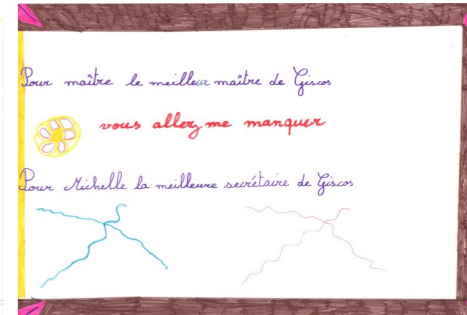 Pour maître le meilleur maître de Giscos
vous allez me manquer
Pour Michelle la meilleure secrétaire de Giscos